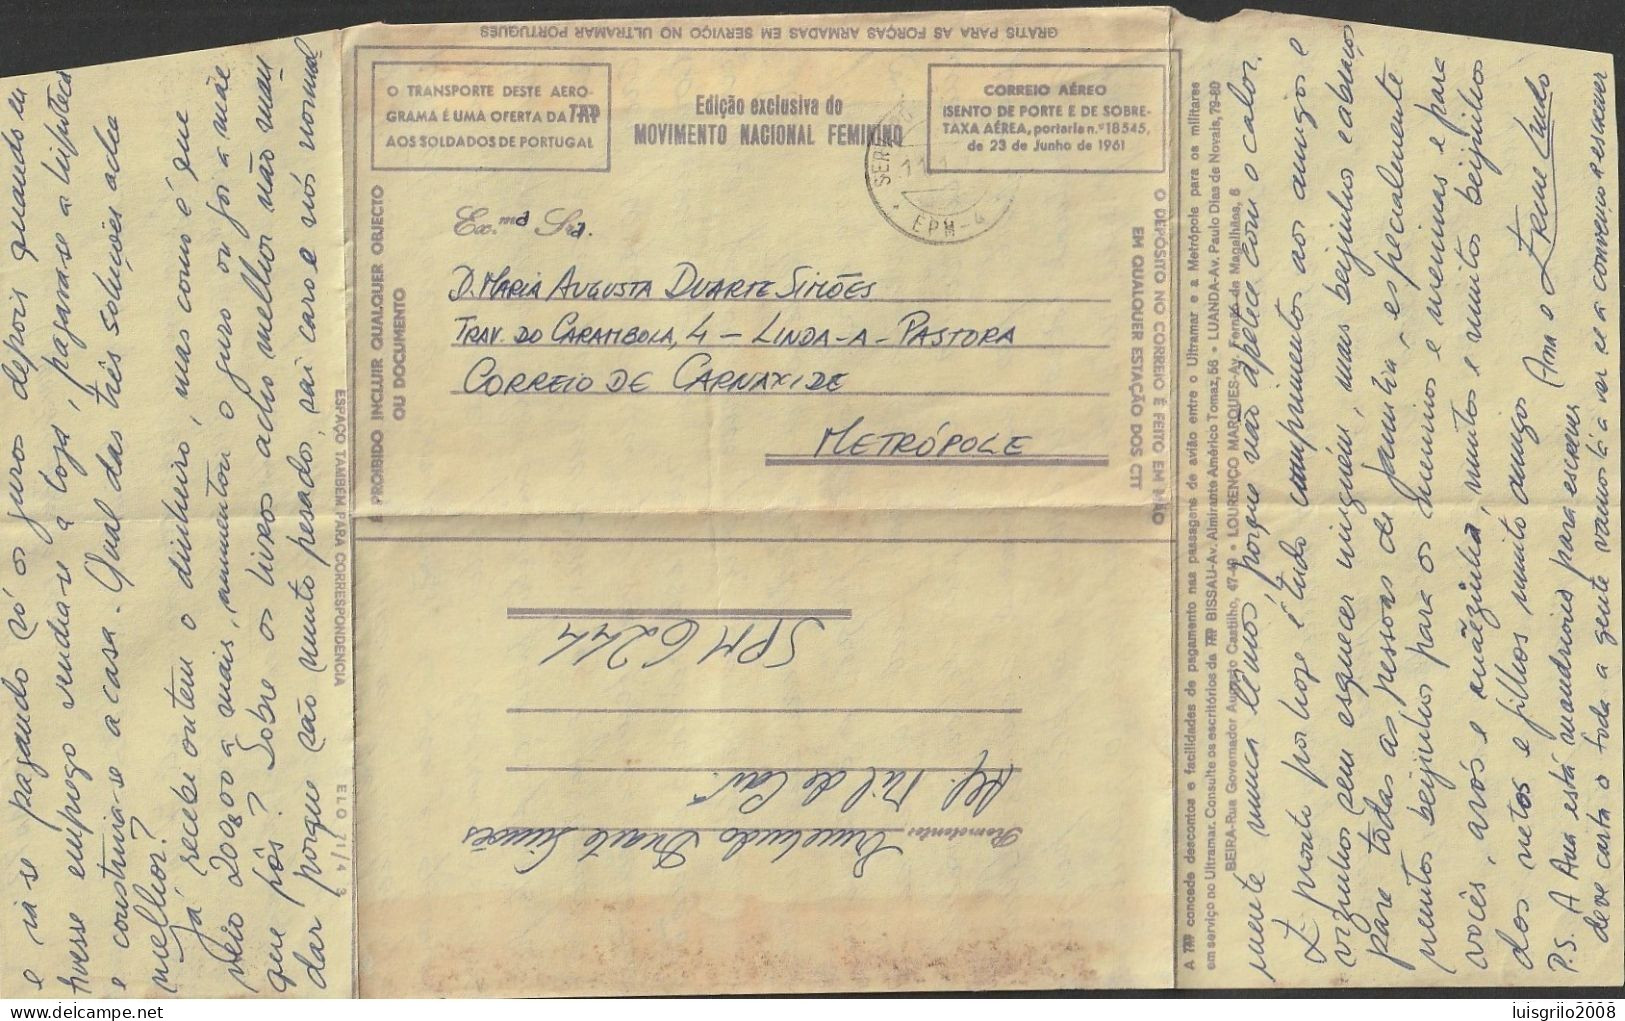 GRATIS PARA AS FORÇAS ARMADAS EM SERVIÇO NO ULTRAMAR PORTUGUÊS
O TRANSPORTE DESTE AERO-
GRAMA É UMA OFERTA DA TAP
AOS SOLDADOS DE PORTUGAL
Edição exclusiva do
MOVIMENTO NACIONAL FEMININO
CORREIO AÉREO
ISENTO DE PORTE E DE SOBRE-
TAXA AÉREA, portaria n.º 18545,
de 23 de Junho de 1961
EPM-4
Ex.ma Sra.
D. MARIA AUGUSTA DUARTE SIMÕES
TRAV. DO CARAMBOLA, 4 – LINDA-A-PASTORA
CORREIO DE CARNAXIDE
METRÓPOLE
É PROIBIDO INCLUIR QUALQUER OBJECTO
OU DOCUMENTO
O DEPÓSITO NO CORREIO É FEITO EM MÃO
EM QUALQUER ESTAÇÃO DOS CTT
ESPAÇO TAMBÉM PARA CORRESPONDÊNCIA
ELO 71/4
Remetente: Duarte Simões
Alf. Mil. de Cav.
SPM 6244
A TAP concede descontos e facilidades de pagamento nas passagens de avião entre o Ultramar e a Metrópole para os militares
em serviço no Ultramar. Consulte os escritórios da TAP BISSAU-Av. Almirante Américo Tomaz, 56 • LUANDA-Av. Paulo Dias de Novais, 79-80
BEIRA-Rua Governador Augusto Castilho, 47-49 • LOURENÇO MARQUES-Av. Fernão de Magalhães, 8
e ia-se pagando só os juros depois quando eu
tivesse emprego vendia-se a loja, pagava-se a hipoteca
e construia-se a casa. Qual das três soluções acha
melhor?
Já recebi ontem o dinheiro, mas como é que
veio 200$00 a mais, aumentou o juro ou foi a mãe
que pôs? Sobre os livros acho melhor não man
dar porque são muito pesados, sai caro e nós normal
mente nunca lemos porque não apetece com o calor.
E pronto por hoje é tudo cumprimentos aos amigos e
vizinhos sem esquecer ninguém, mais beijinhos e abraços
para todas as pessoas de família, especialmente
muitos beijinhos para os meninos e meninas e para
vocês, avós e mãezinha, muitos e muitos beijinhos
dos netos e filhos muito amigos
Ana e
P.S. A Ana está mandriona para escrever
deve carta a toda a gente vamos lá a ver se a convenço a escrever
luisgrilo2008